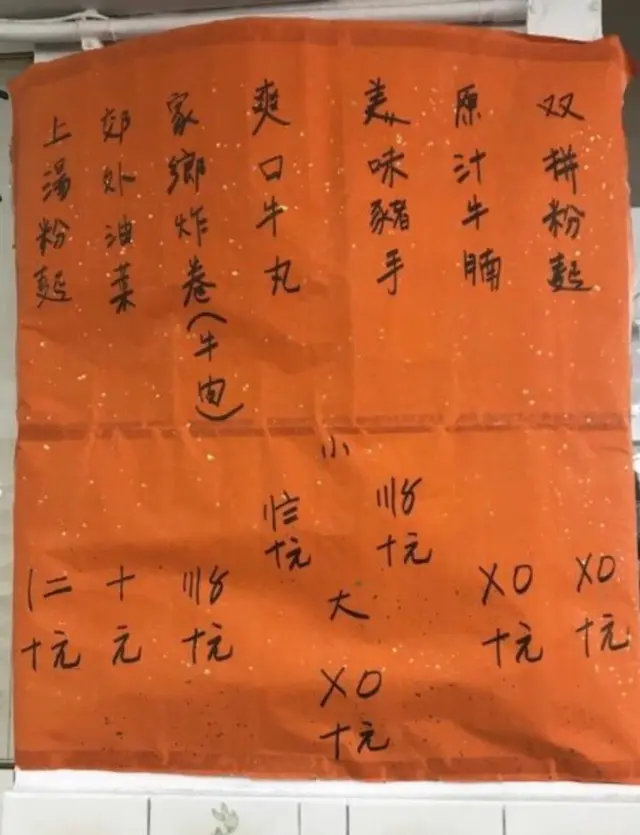 双拼粉麵
原汁牛腩
美味豬手
爽口牛丸
家鄉炸卷(牛肉)
郊外油菜
上湯粉麵
〤〇
十元
〤〇
十元
小
〣〨
十元
十元
大
〤〇
十元
〣〨
十元
十
元
〡二
十元